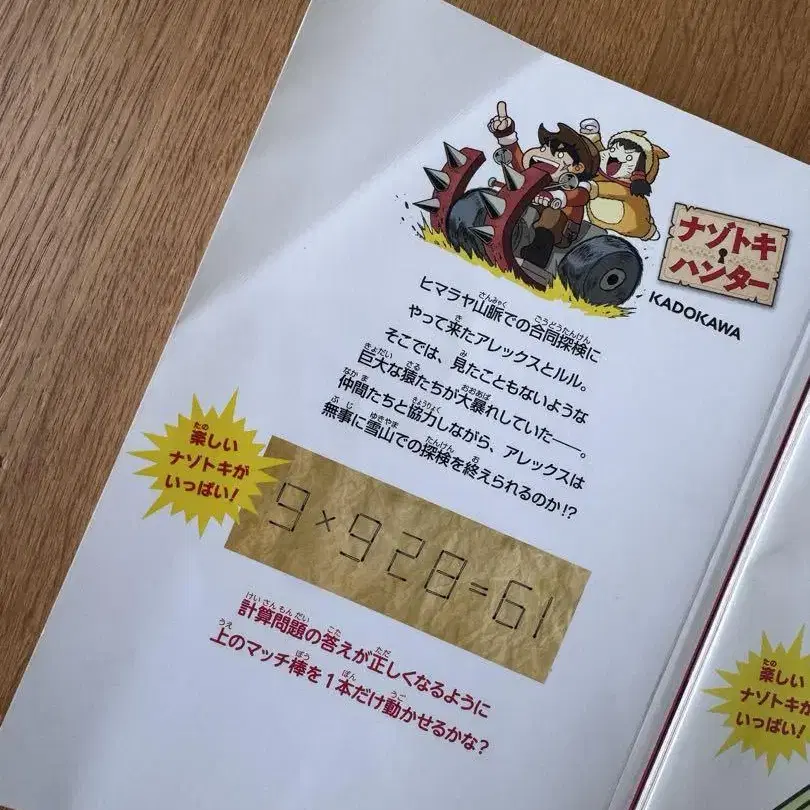 ナゾトキ
ハンター
KADOKAWA
ヒマラヤ山脈での合同探検に
やって来たアレックスとルル。
そこでは、見たこともないような
巨大な猿たちが大暴れしていた――。
仲間たちと協力しながら、アレックスは
無事に雪山での探検を終えられるのか!?
楽しい
ナゾトキが
いっぱい!
9×928=61
計算問題の答えが正しくなるように
上のマッチ棒を1本だけ動かせるかな?
楽しい
ナゾトキが
いっぱい!